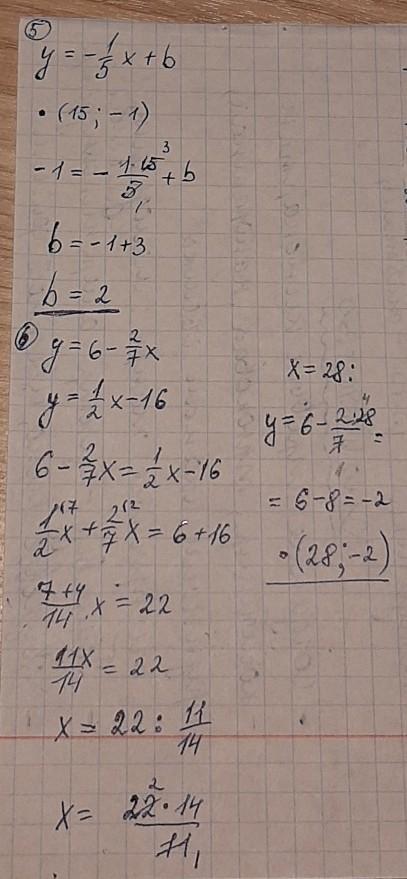 5
y = -1/5 x + b
• (15; -1)
-1 = - 1·15 3/5 1 + b
b = -1+3
b = 2
6
y = 6 - 2/7 x
y = 1/2 x - 16
6 - 2/7 x = 1/2 x - 16
1/2 (7 x + 2/7 (2 x = 6 + 16
7+4/14 · x = 22
11x/14 = 22
x = 22 : 11/14
x = 22 2 · 14/11 1
x = 28:
y = 6 - 2·28 4/7 1 =
= 6 - 8 = -2
• (28; -2)